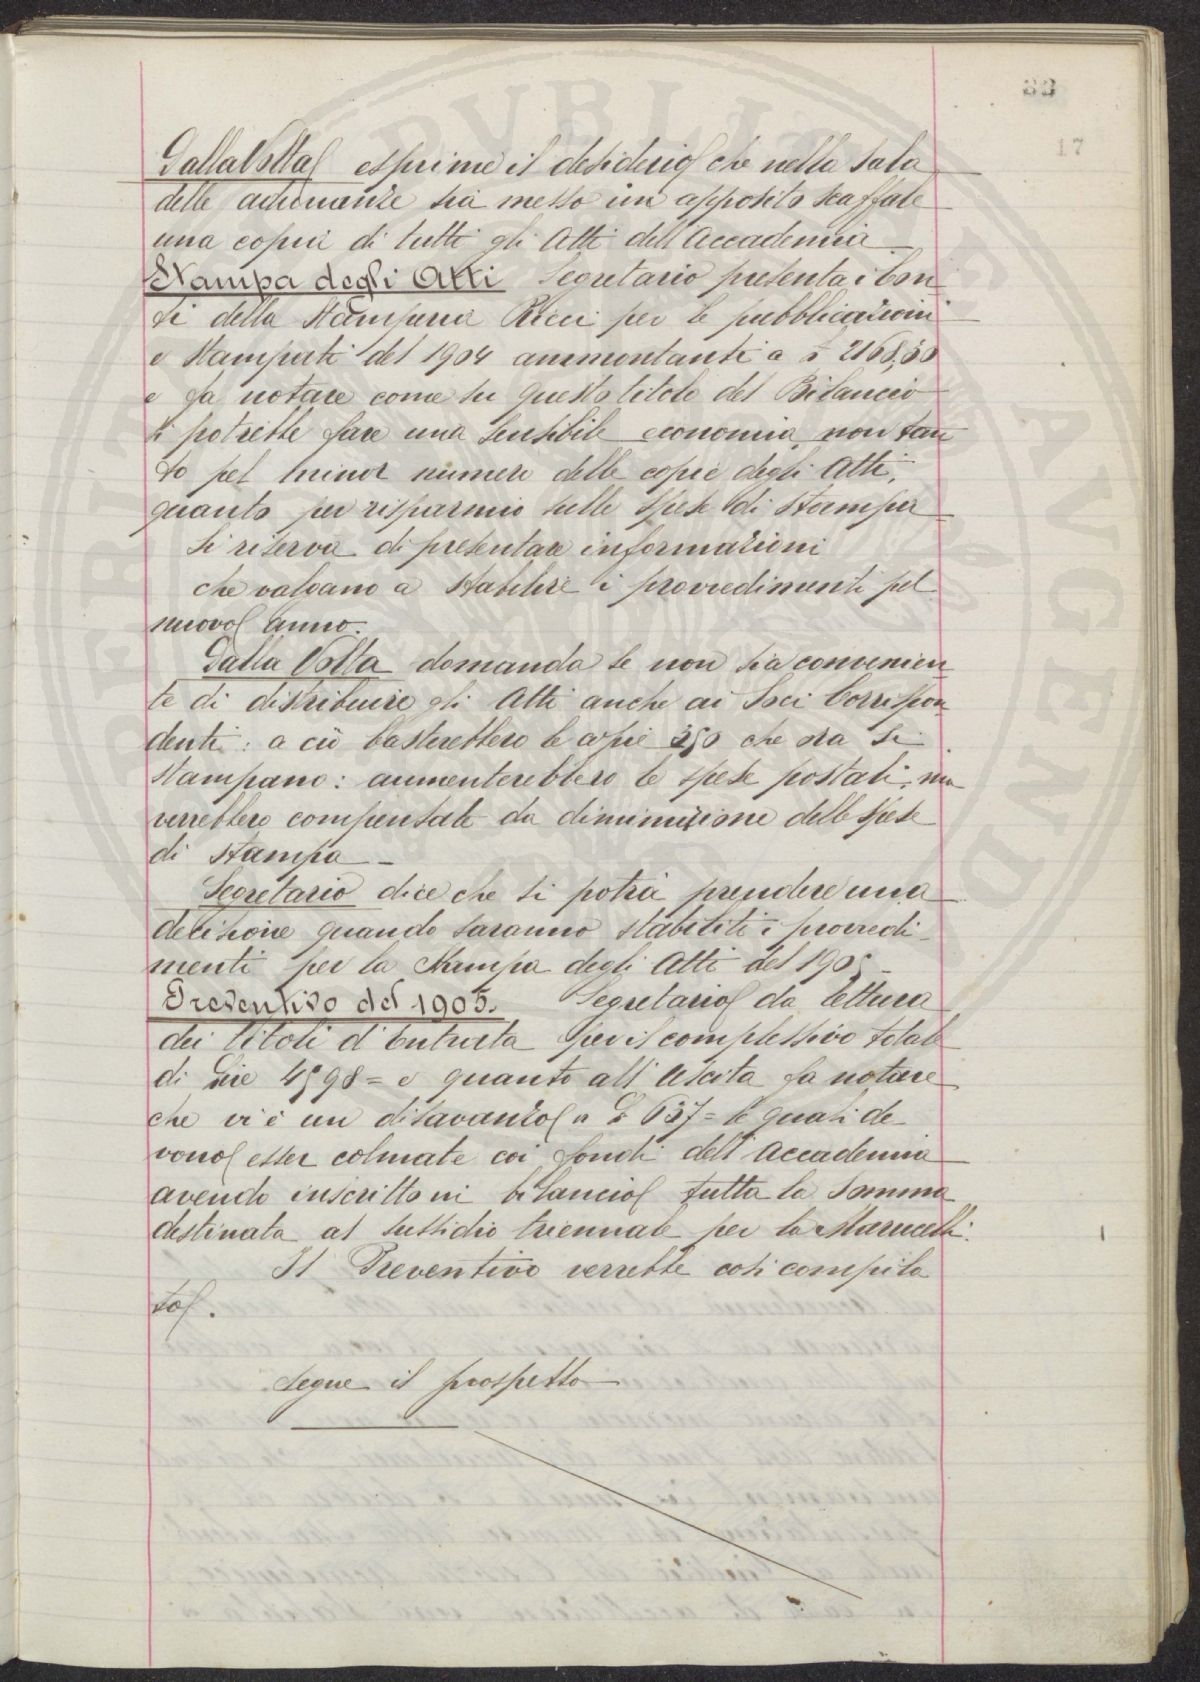 33
17
Dalla Volta esprime il desiderio che nella sala
delle adunanze sia messo in apposito scaffale
una copia di tutti gli Atti dell'Accademia
Stampa degli Atti Segretario presenta i Con
ti della Stamperia Ricci per le pubblicazioni
e stampati del 1904 ammontanti a £ 2168,30
e fa notare come su questo titolo del Bilancio
si potrebbe fare una sensibile economia, non tan
to pel minor numero delle copie degli Atti,
quanto per risparmio sulle spese di stampa
Si riserva di presentare informazioni
che valgano a stabilire i provvedimenti pel
nuovo anno.
Dalla Volta domanda se non sia convenien
te di distribuire gli Atti anche ai Soci Corrispon
denti: a ciò basterebbero le copie 350 che ora si
stampano: aumenterebbero le spese postali, ma
verrebbero compensate da diminuzione delle spese
di stampa —
Segretario dice che si potrà prendere una
decisione quando saranno stabiliti i provvedi-
menti per la stampa degli Atti del 1905 —
Preventivo del 1905. Segretario da lettura
dei titoli d'Entrata per il complessivo totale
di Lire 4598 = e quanto all'Uscita fa notare
che vi è un disavanzo a £ 637 = le quali de-
vono esser colmate coi fondi dell'Accademia
avendo inscritto in bilancio tutta la somma
destinata al sussidio triennale per la Marucelli.
Il Preventivo verrebbe così compila
to.
Segue il prospetto
PERITA PVBLICAE AVGENDA